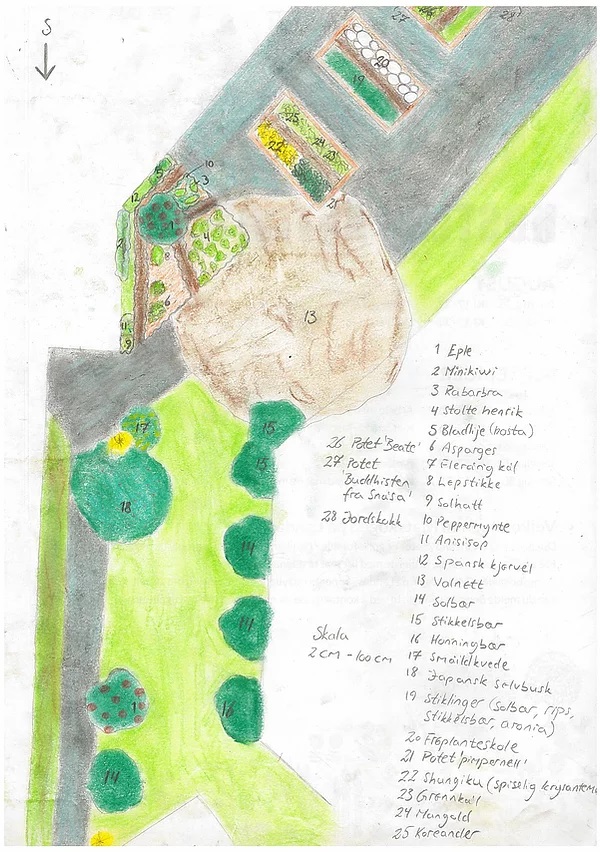 S
27
28
20
19
25
24
22
23
21
5
10
3
12
1
4
2
8
6
11
9
13
17
15
15
18
14
14
1
16
14
1 Eple
2 Minikiwi
3 Rabarbra
4 Stolte henrik
5 Bladlilje (hosta)
6 Asparges
7 Flerårig kål
8 Løpstikke
9 Solhatt
10 Peppermynte
11 Anisisop
12 Spansk kjørvel
13 Valnøtt
14 Solbær
15 Stikkelsbær
16 Honningbær
17 Småildkvede
18 Japansk sølvbusk
19 Stiklinger (solbær, rips,
stikkelsbær, aronia)
20 Frøplanteskole
21 Potet 'pimpernell'
22 Shungiku (spiselig krysantemum
23 Grønnkål
24 Mangold
25 Koreander
26 Potet 'Beate'
27 Potet
'Buddhisten
fra Snåsa'
28 Jordskokk
Skala
2 CM - 100 cm